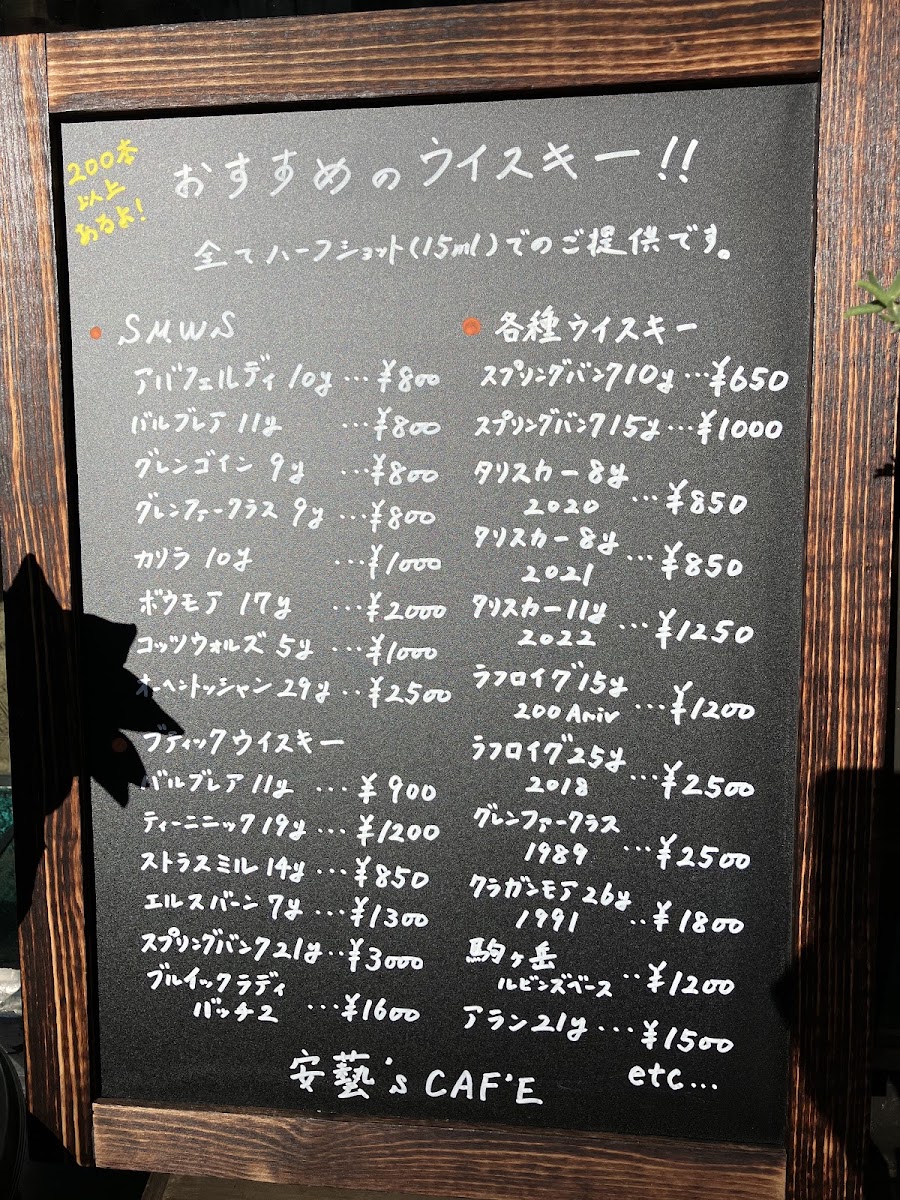 200本
以上
あるよ!
おすすめのウイスキー!!
全てハーフショット(15ml)でのご提供です。
SMWS
アバフェルディ 10y …¥800
バルブレア 11y …¥800
グレンゴイン 9y …¥800
グレンファークラス 9y …¥800
カリラ 10y …¥1000
ボウモア 17y …¥2000
コッツウォルズ 5y …¥1000
オーヘントッシャン 29y ‥¥2500
ブティックウイスキー
バルブレア 11y …¥900
ティーニニック 19y …¥1200
ストラスミル 14y …¥850
エルスバーン 7y …¥1300
スプリングバンク21y…¥3000
ブルイックラディ
バッチ2 …¥1600
各種ウイスキー
スプリングバンク10y …¥650
スプリングバンク15y …¥1000
タリスカー 8y
2020 …¥850
タリスカー 8y
2021 …¥850
タリスカー 11y
2022 …¥1250
ラフロイグ 15y
200 Aniv …¥1200
ラフロイグ 25y
2018 …¥2500
グレンファークラス
1989 …¥2500
クラガンモア 26y
1991 ‥¥1800
駒ヶ岳
ルビンズベース ‥¥1200
アラン21y …¥1500
etc...
安藝's CAF'E